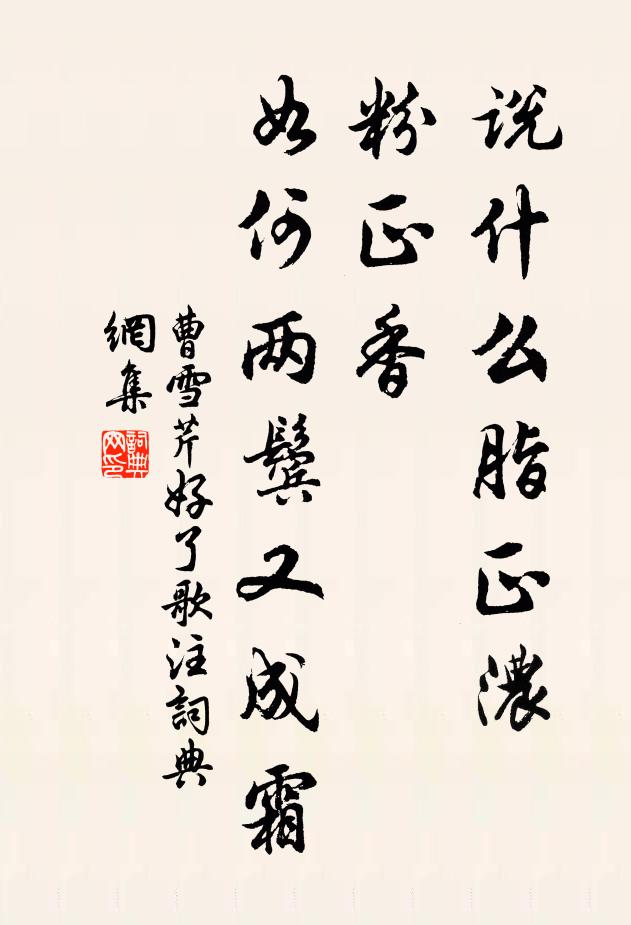 说什么脂正濃
粉正香
如何两鬓又成霜
曹雪芹好了歌注詞典
網集
詞典网印